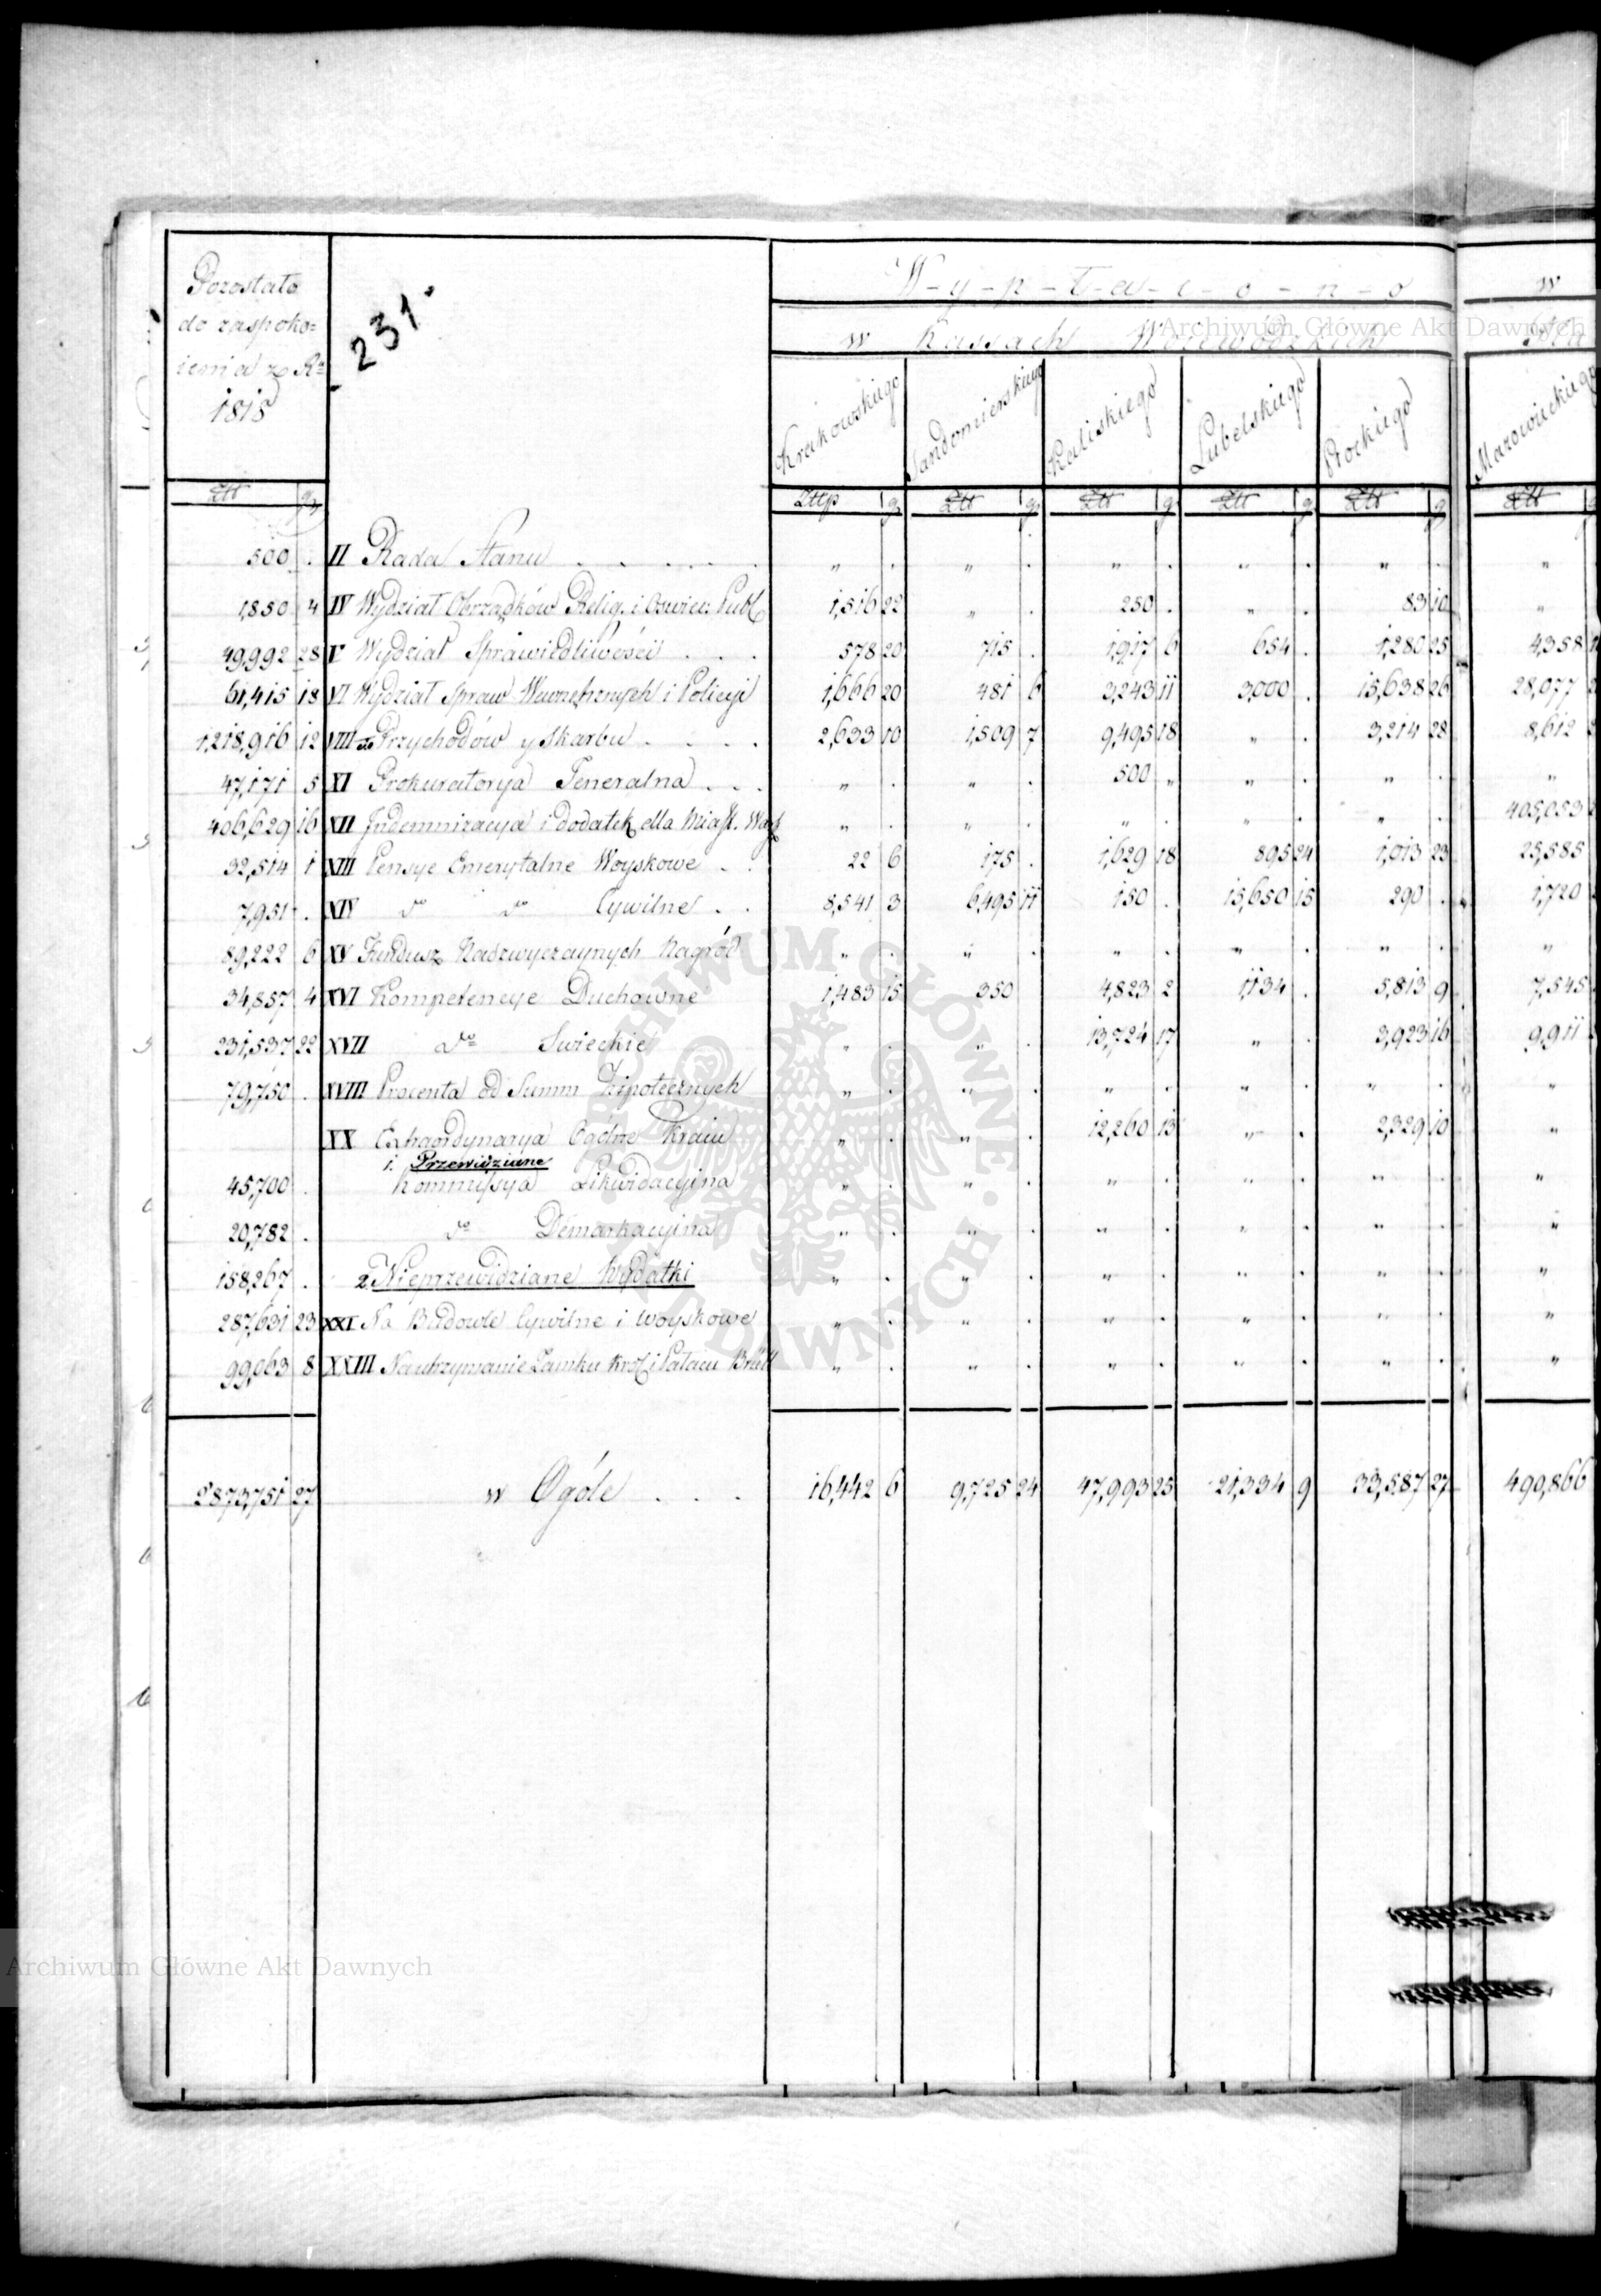 Pozostało
do zaspoko=
ienia z Rº
1818
231.
W-y-p-ł-a-c-o-n-o
w
w Kassach Woiewódzkich
Krakowskiego Sandomierskiego Kaliskiego Lubelskiego Płockiego Mazowieckiego
Złł gr Złlp g Złł g Złł g Złł g Złł g Złł
500 . II Rada Stanu . . . . . " . " . " . " . " . "
1,850 4 IV Wydział Obrządków Relig. i Oswiec: Publ 1,516 22 " . 250 . " . 83 10 "
49,992 28 V Wydział Sprawiedliwości . . . 578 20 715 . 1,917 6 654 . 1,280 25 4,358
61,415 18 VI Wydział Spraw Wewnętrznych i Policyi 1,666 20 481 6 3,243 11 3,000 . 15,638 26 28,077
1,218,916 12 VIII do Przychodów y Skarbu . . . . 2,633 10 1,509 7 9,495 18 " . 3,214 28 8,612
47,171 5 XI Prokuratorya Generalna . . . " . " . 500 " " . " . "
406,629 16 XII Indemnizacya i dodatek dla Miast. War " . " . " . " . " . 405,053
32,514 1 XIII Pensye Emerytalne Woyskowe . . 22 6 175 . 1,629 18 895 24 1,013 23 25,585
7,951 . XIV do do Cywilne . . 8,541 3 6,495 11 150 . 15,650 15 290 . 1,720
89,222 6 XV Fundusz Nadzwyczaynych Nagród " . " . " . " . " . "
34,857 4 XVI Kompetencye Duchowne 1,483 15 350 4,823 2 1,134 . 5,813 9 7,545
231,537 22 XVII do Swieckie " . " . 13,724 17 " . 3,923 16 9,911
79,750 . XVIII Procenta od Summ Hipotecznych " . " . " . " . " . "
XX Extraordynarya Ogólne Kraiu " . " . 12,260 13 " . 2,329 10 "
1. Przewidziane
45,700 . Kommissya Likwidacyina " . " . " . " . " . "
20,782 . do Demarkacyina " . " . " . " . " . "
158,267 . 2. Nieprzewidziane Wydatki " . " . " . " . " . "
287,631 23 XXI Na Budowle Cywilne i Woyskowe " . " . " . " . " . "
99,063 8 XXIII Na utrzymanie Zamku Król i Pałacu Brüll " . " . " . " . " . "
2873,751 27 w Ogóle . . . 16,442 6 9,725 24 47,993 25 21,334 9 33,587 27 490,866
Archiwum Główne Akt Dawnych
ARCHIWUM GŁÓWNE AKT DAWNYCH
Archiwum Główne Akt Dawnych